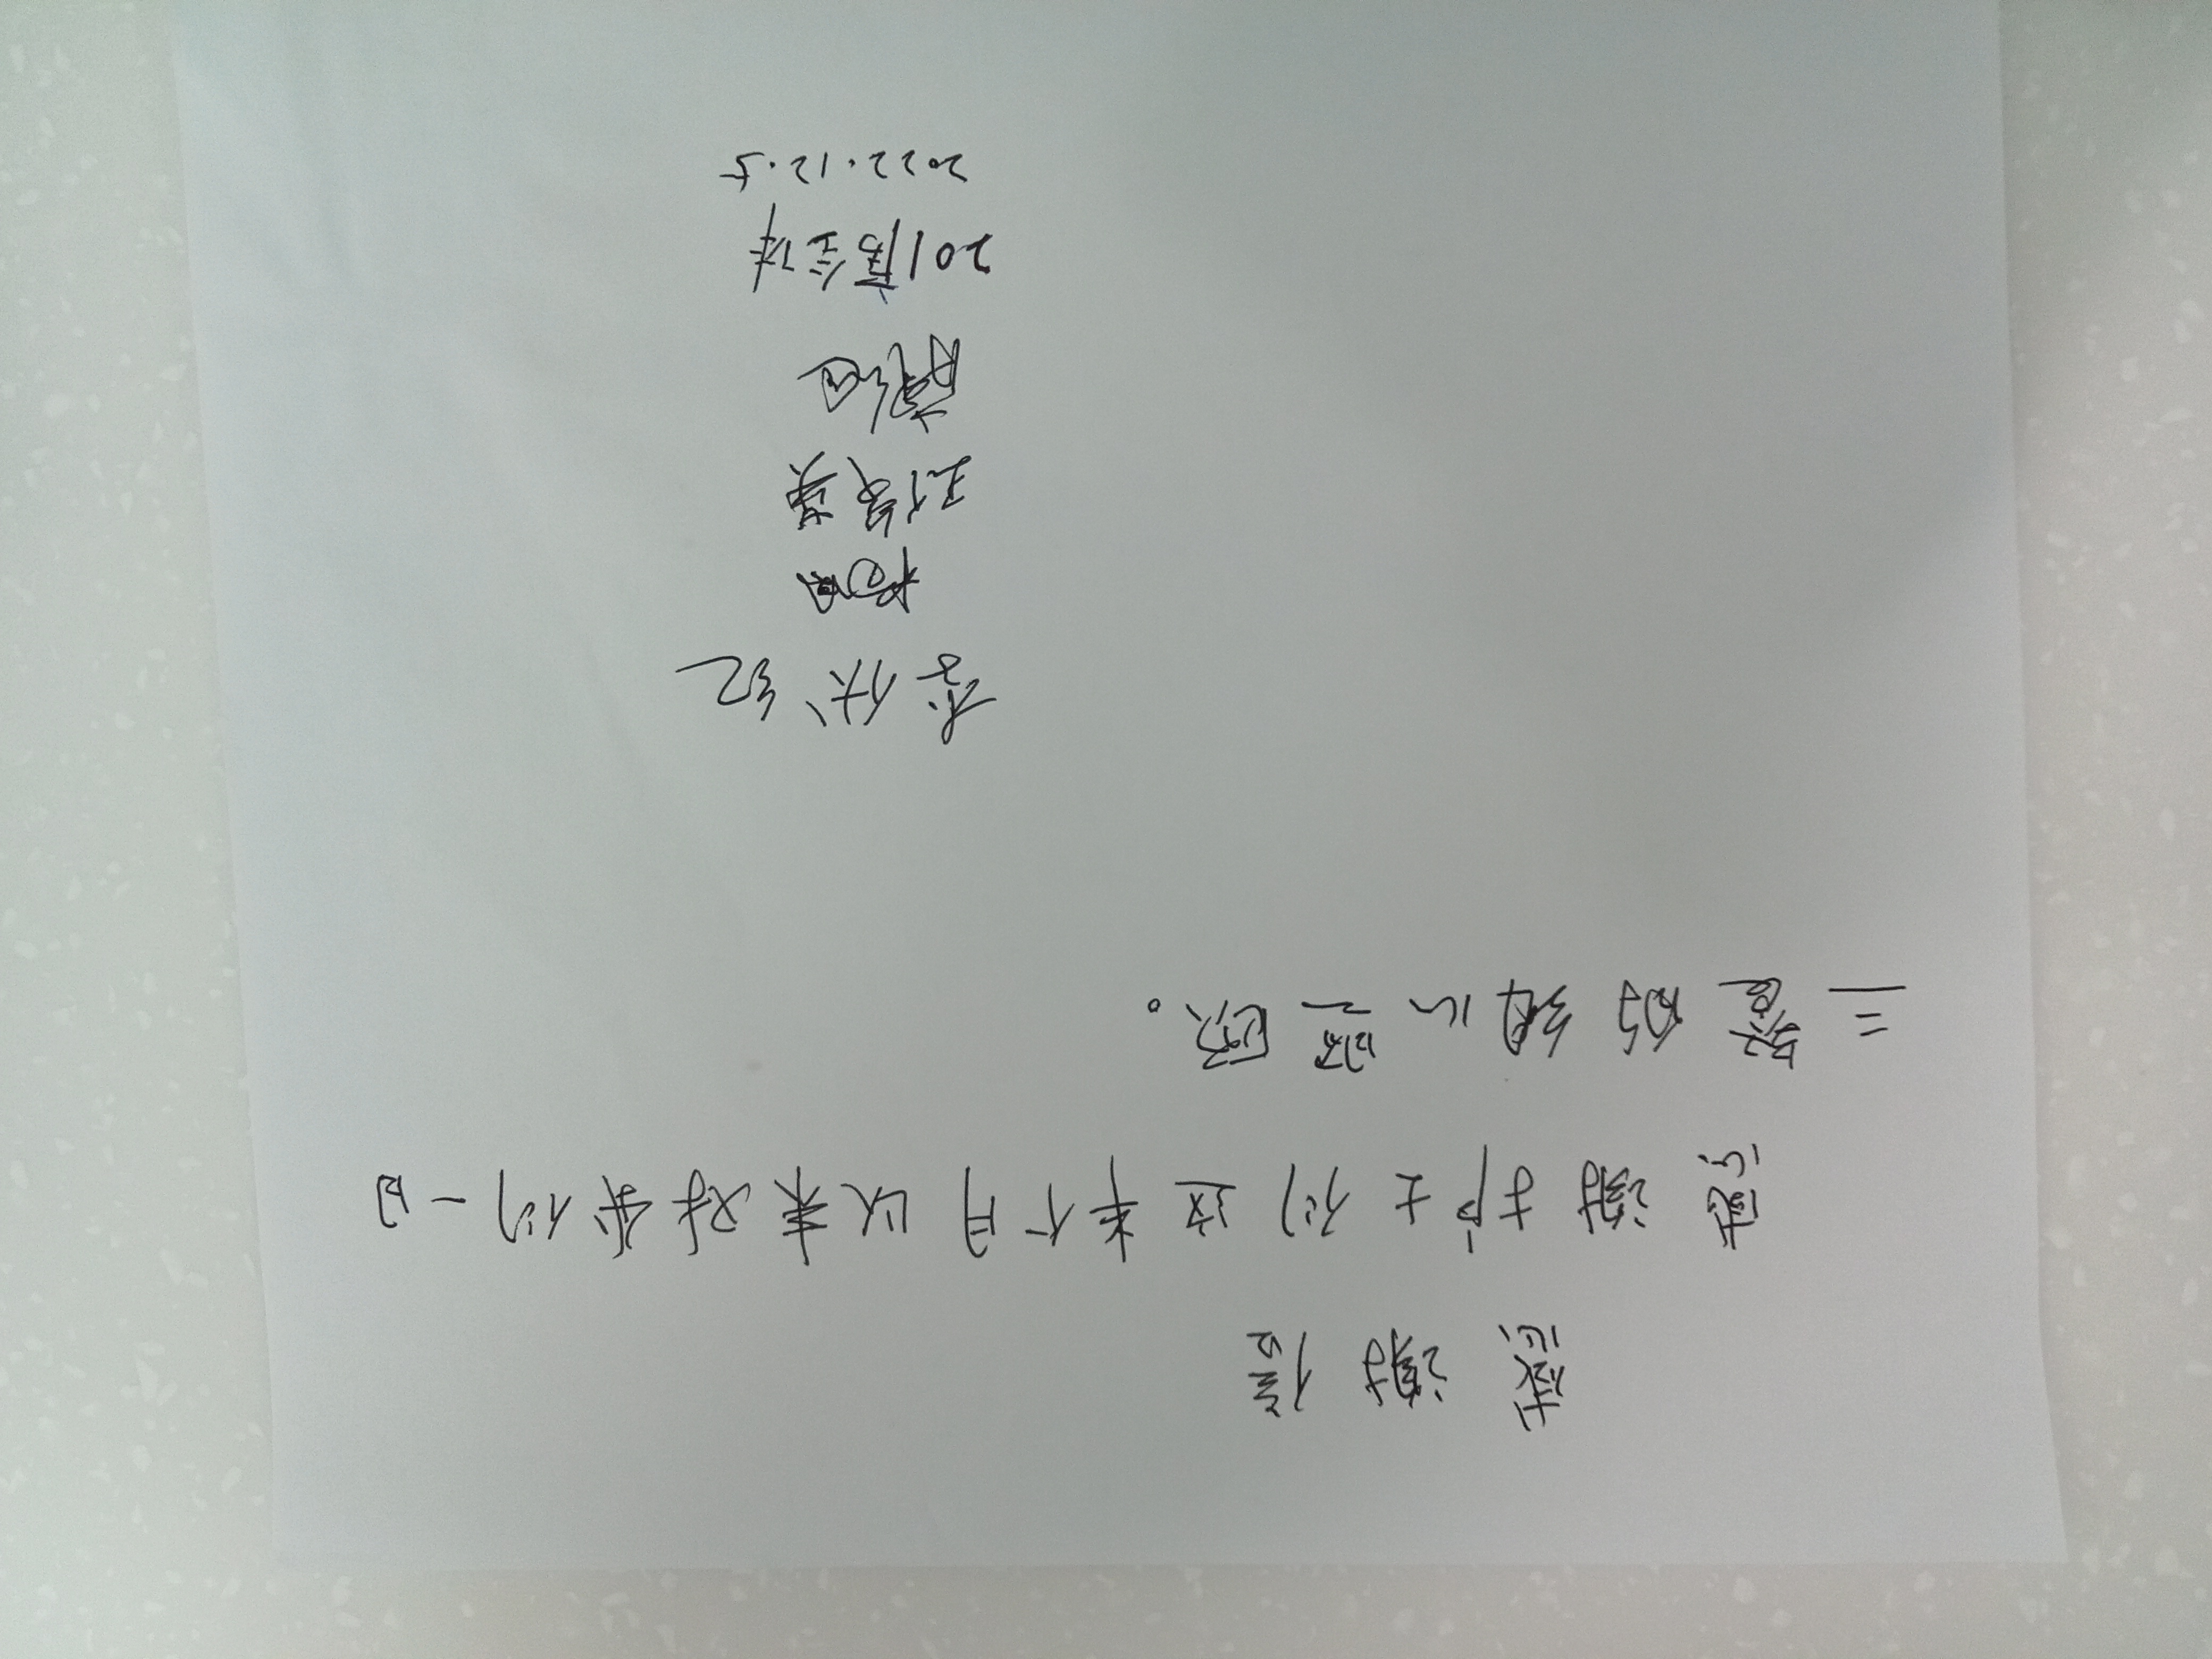 感谢信
感谢护士们这半个月以来对我们一日
三餐的细心照顾。
李伏红
王俊英
201房全体
2022.12.5